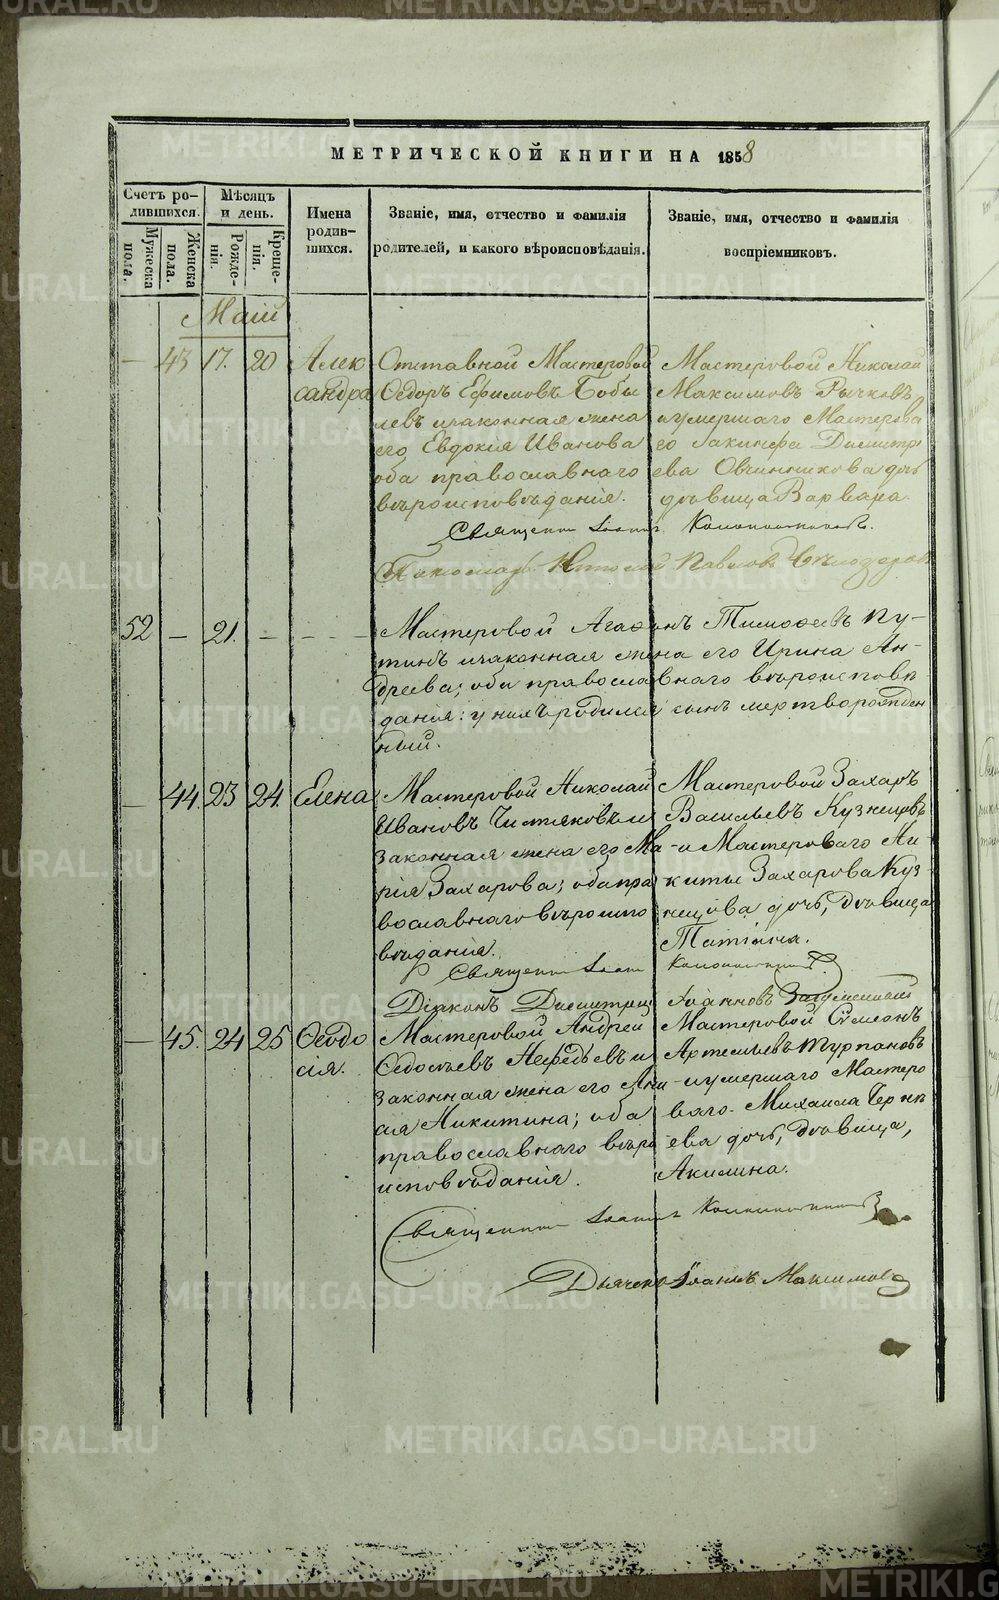 МЕТРИЧЕСКОЙ КНИГИ НА 1858
Счетъ ро-
дившихся.
Мужеска
пола.
Женска
пола.
Мѣсяцъ
и день.
Рожде-
нія.
Креще-
нія.
Имена
родив-
шихся.
Званіе, имя, отчество и фамилія
родителей, и какого вѣроисповѣданія.
Званіе, имя, отчество и фамилія
воспріемниковъ.
Маій
— 43 17. 20 Алек
сандра
Отставной Мастеровой
Ѳедоръ Ефимовъ Бобы
левъ и законная жена
его Евдокія Иванова
оба православнаго
вѣроисповѣданія.
Мастеровой Николай
Максимовъ Рычковъ
и умершаго Мастерова
го Іакинфа Димитрі
ева Овчинникова дочь
дѣвица Варвара.
Священн Іоаннъ
Павловъ
52 — 21. - - - -
Мастеровой Агафонъ Тимофеевъ Пу-
тинъ и законная жена его Ирина Ан-
дреева; оба православнаго вѣроисповѣ-
данія: у нихъ родился сынъ мертворожден
ный.
— 44. 23 24. Елена
Мастеровой Николай
Ивановъ Чистяковъ и
законная жена его Ма
рія Захарова; оба пра
вославнаго вѣроиспо
вѣданія.
Мастеровой Захаръ
Васильевъ Кузнецовъ
- и Мастероваго Ни-
киты Захарова Куз-
нецова дочь, дѣвица
Татіяна.
Священн Іоанн
Діаконъ Димитрій Іоанновъ
— 45. 24 25 Ѳеодо
сія.
Мастеровой Андрей
Ѳедосѣевъ Нефедьевъ и
законная жена его Ани
сія Никитина; оба
православнаго вѣро
исповѣданія.
Мастеровой Сѵмеонъ
Артемьевъ Турпановъ
- и умершаго Мастеро
ваго Михаила Черня
ева дочь, дѣвица,
Акилина.
Священн Іоаннъ
Дьячекъ Іоаннъ Максимовъ
METRIKI.GASO-URAL.RU